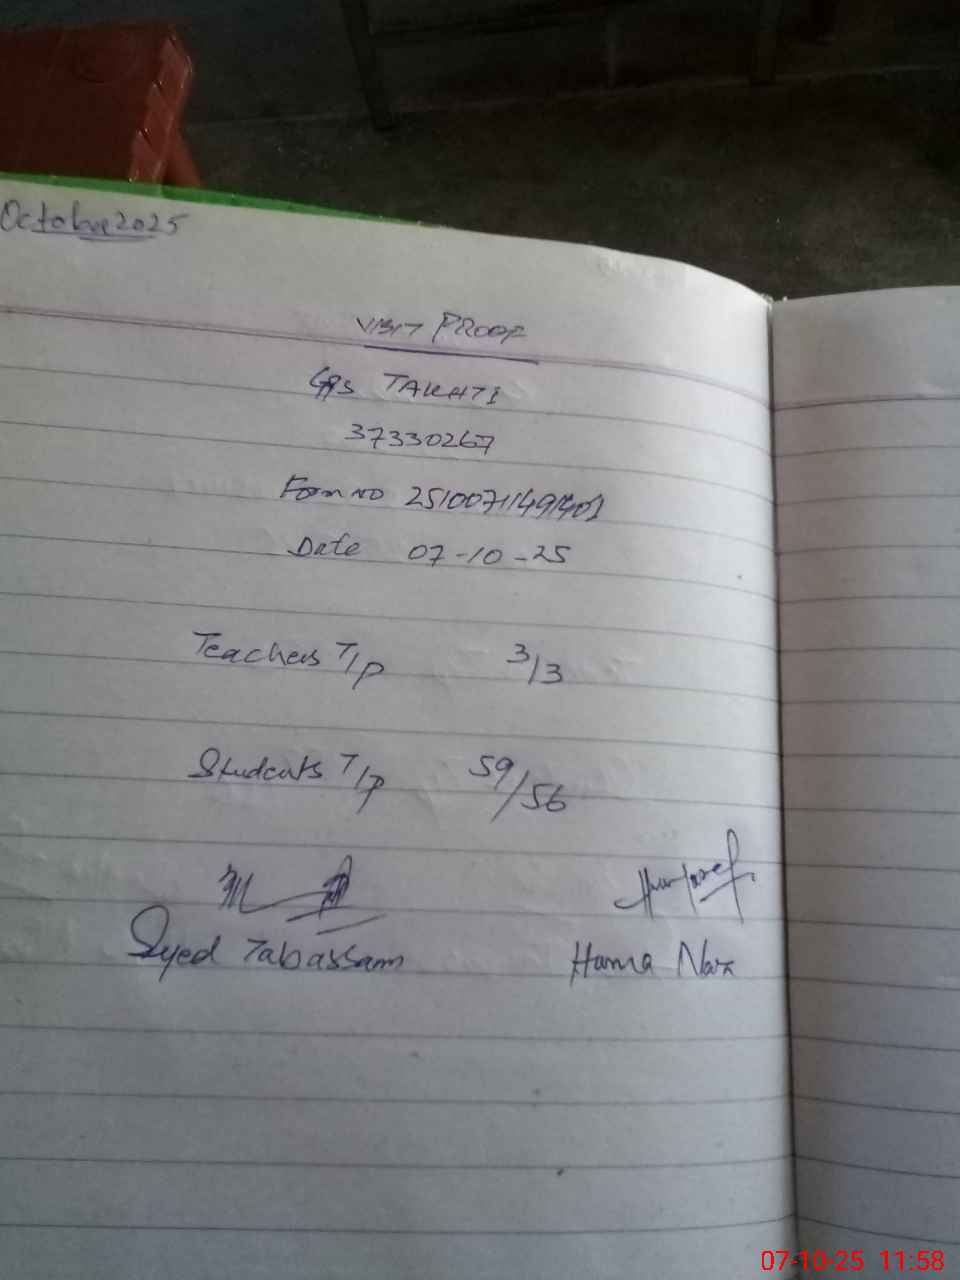 October 2025
VISIT PROOF
GPS TAKHTI
37330267
Form no 2510071149401
Date 07-10-25
Teachers T/P 3/3
Students T/P 59/56
Syed Tabassam
Huma Naz
07-10-25 11:58